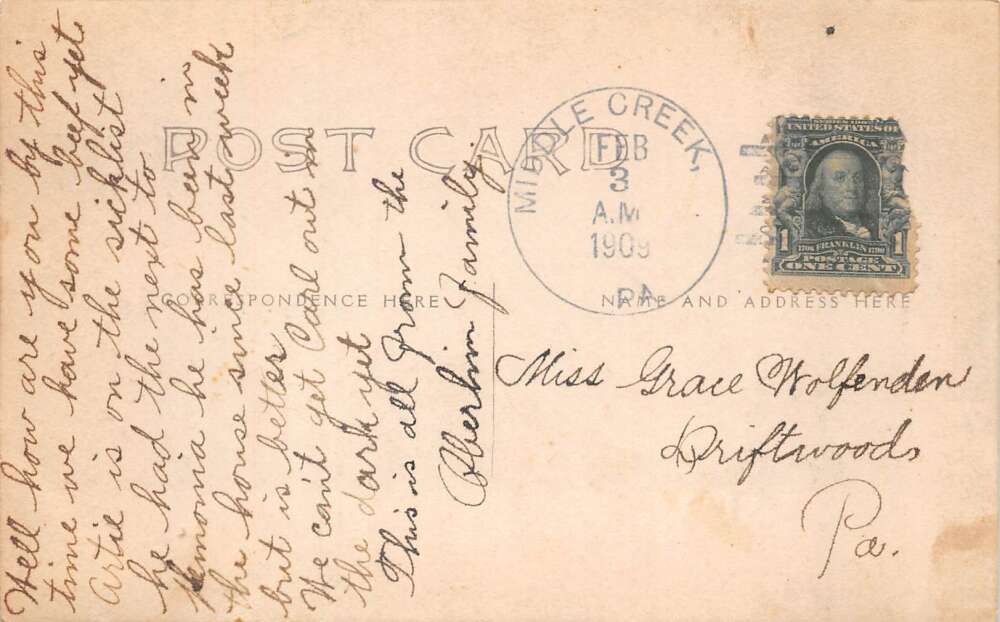 Well how are you by this
time we have some beef yet
Artie is on the sicklist
he had the next to
Pemonia he has been in
the house since last week
but is better
We can't get Carl out in
the dark yet
This is all from the
Oberlin Family.
POST CARD
CORRESPONDENCE HERE
NAME AND ADDRESS HERE
MIDDLE CREEK,
FEB
3
A.M
1909
PA
UNITED STATES OF
AMERICA
1 1
1706 FRANKLIN 1790
POSTAGE
ONE CENT
Miss Grace Wolfenden
Driftwood
Pa.